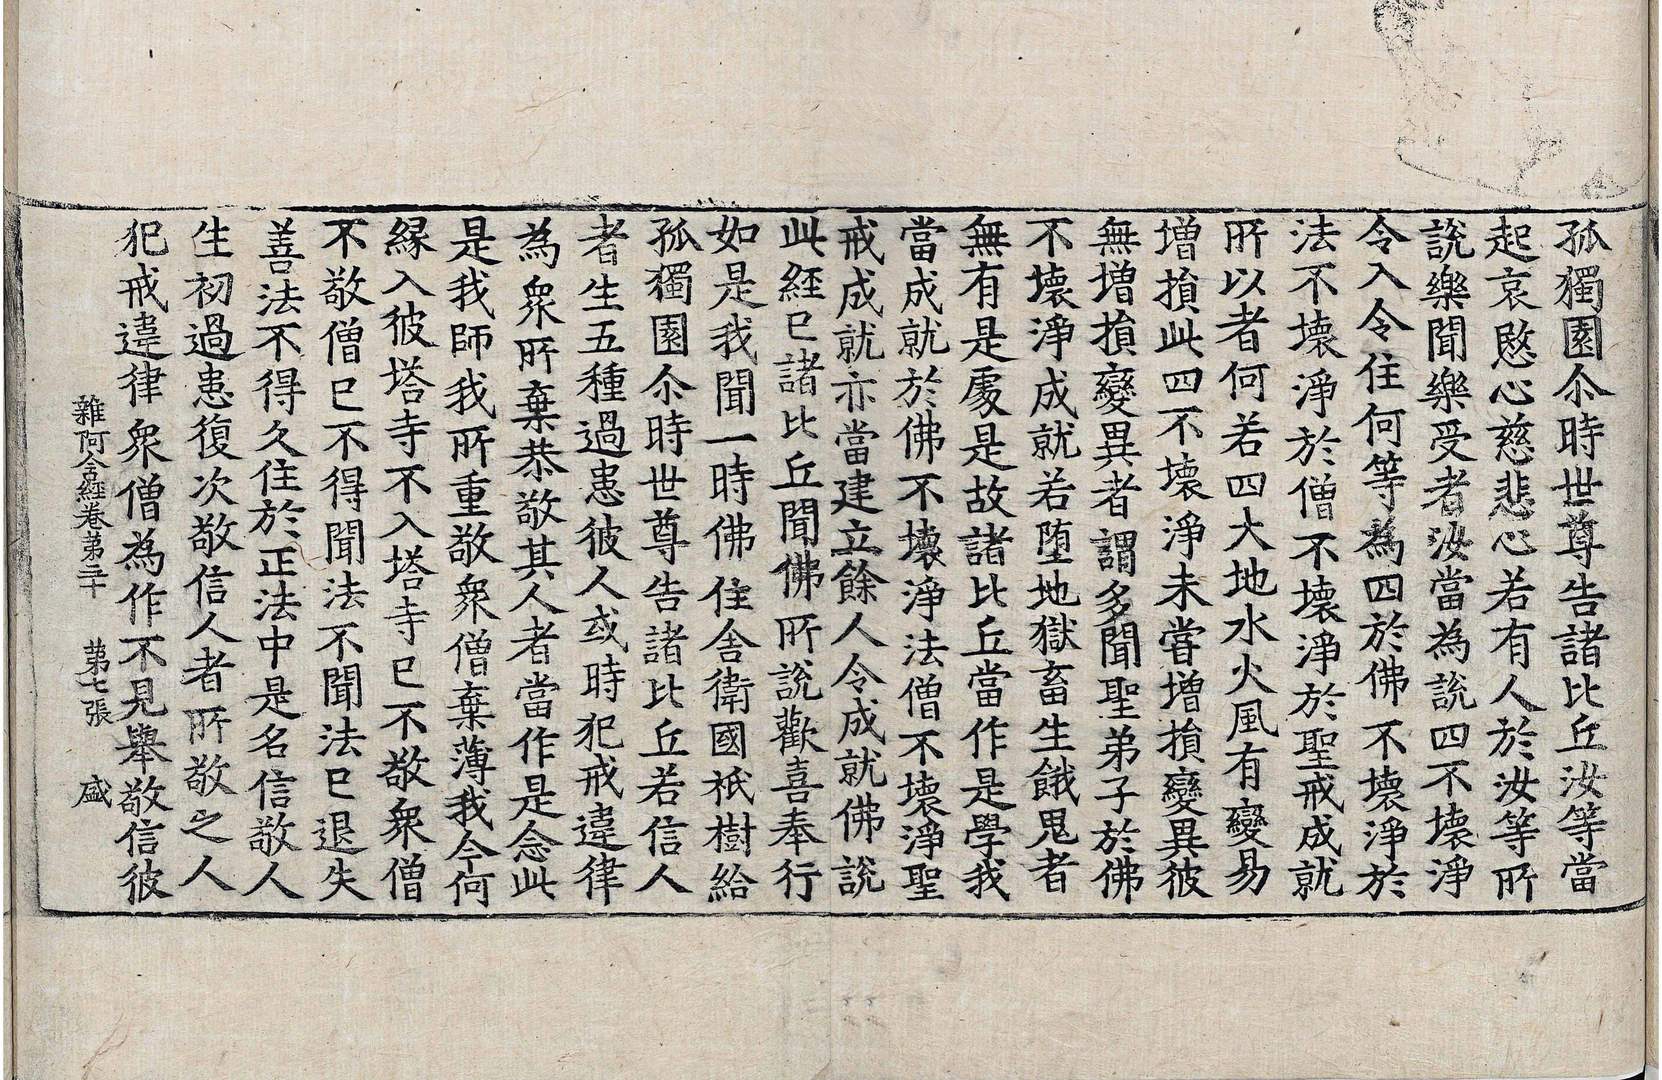 孤獨園尒時世尊告諸比丘汝等當
起哀愍心慈悲心若有人於汝等所
說樂聞樂受者汝當為說四不壞淨
令入令住何等為四於佛不壞淨於
法不壞淨於僧不壞淨於聖戒成就
所以者何若四大地水火風有變易
增損此四不壞淨未甞增損變異彼
無增損變異者謂多聞聖弟子於佛
不壞淨成就若墮地獄畜生餓鬼者
無有是處是故諸比丘當作是學我
當成就於佛不壞淨法僧不壞淨聖
戒成就亦當建立餘人令成就佛說
此經已諸比丘聞佛所說歡喜奉行
如是我聞一時佛住舍衛國祇樹給
孤獨園尒時世尊告諸比丘若信人
者生五種過患彼人或時犯戒違律
為眾所棄恭敬其人者當作是念此
是我師我所重敬眾僧棄薄我今何
緣入彼塔寺不入塔寺已不敬眾僧
不敬僧已不得聞法不聞法已退失
善法不得久住於正法中是名信敬人
生初過患復次敬信人者所敬之人
犯戒違律眾僧為作不見舉敬信彼
雜阿含經卷第三十 第七張 盛